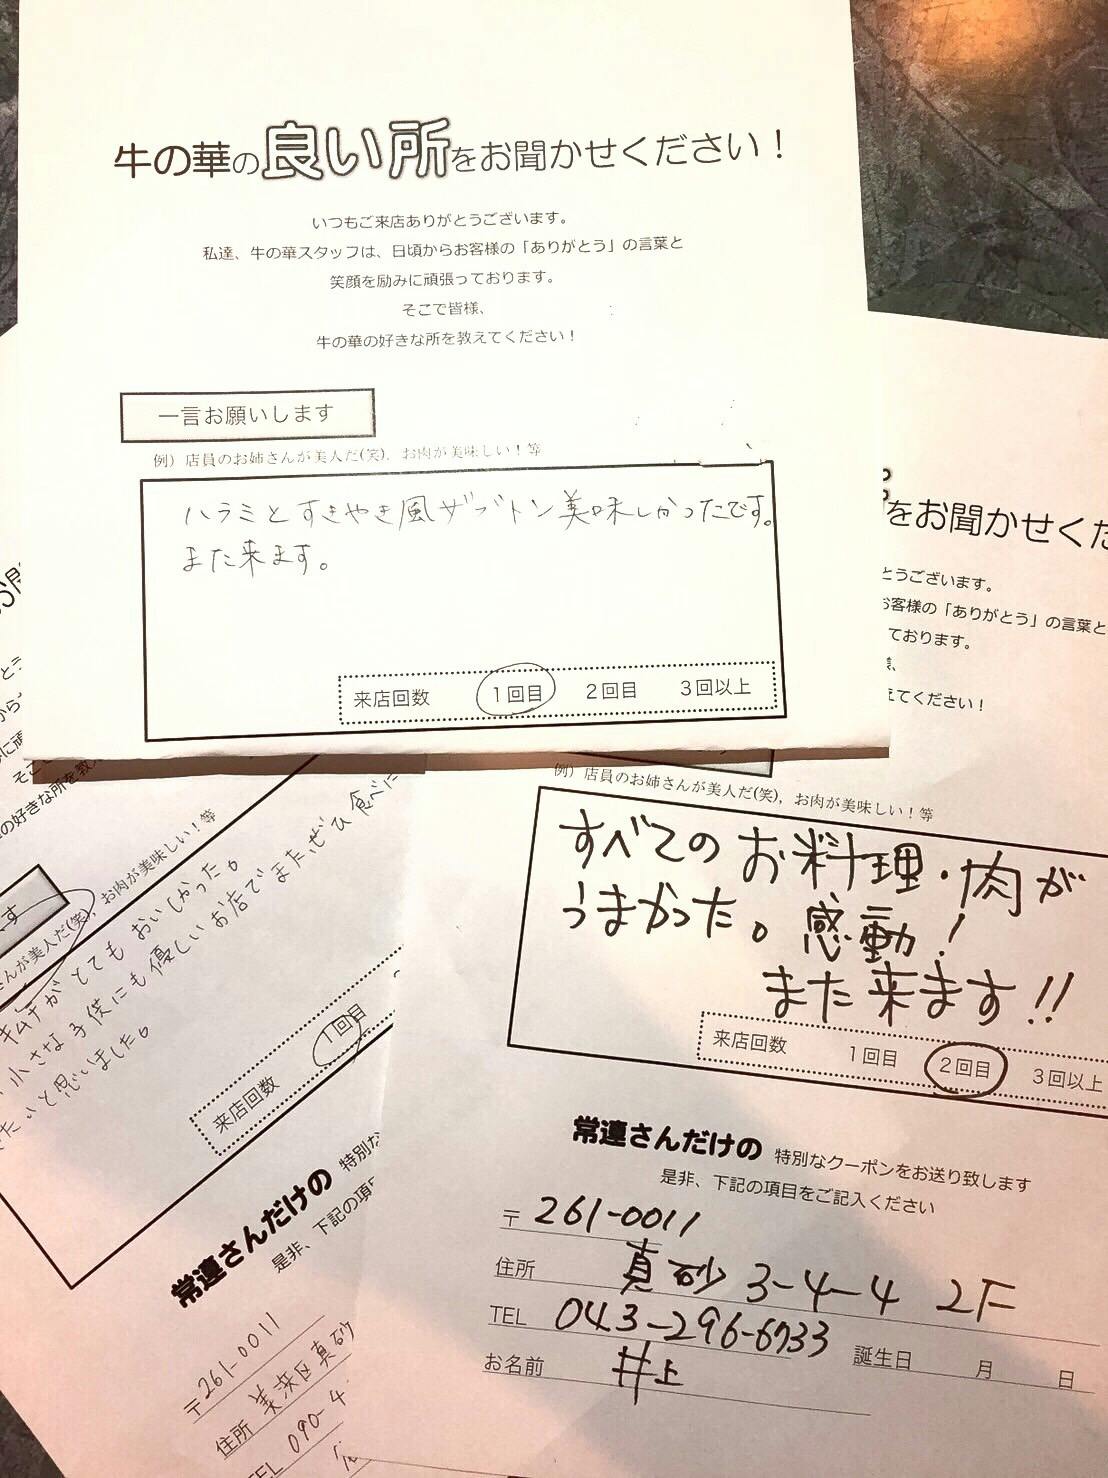 牛の華の良い所をお聞かせください！
いつもご来店ありがとうございます。
私達、牛の華スタッフは、日頃からお客様の「ありがとう」の言葉と
笑顔を励みに頑張っております。
そこで皆様、
牛の華の好きな所を教えてください！
一言お願いします
例）店員のお姉さんが美人だ(笑)，お肉が美味しい！等
ハラミとすきやき風ザブトン美味しかったです。
また来ます。
来店回数 1回目 2回目 3回以上
をお聞かせくだ
とうございます。
お客様の「ありがとう」の言葉と
ております。
様、
えてください！
例）店員のお姉さんが美人だ(笑)，お肉が美味しい！等
すべてのお料理・肉が
うまかった。感動！
また来ます!!
来店回数 1回目 2回目 3回以上
常連さんだけの 特別なクーポンをお送り致します
是非、下記の項目をご記入ください
〒 261-0011
住所 真砂 3-4-4 2F
TEL 043-296-6733 誕生日 月 日
お名前 井上
そこ
の好きな所を教え
す
さんが美人だ(笑)，お肉が美味しい！等
キムチがとてもおいしかった。
小さな子供にも優しいお店でまた、ぜひ食べに
たいと思いました。
来店回数 1回目
常連さんだけの 特別な
是非、下記の項目
〒261-0011
住所 美浜区真砂
TEL 090-4